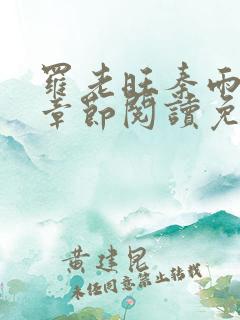 羅老旺秦雨
章節閱讀免
黄建昆
未经同意禁止转载